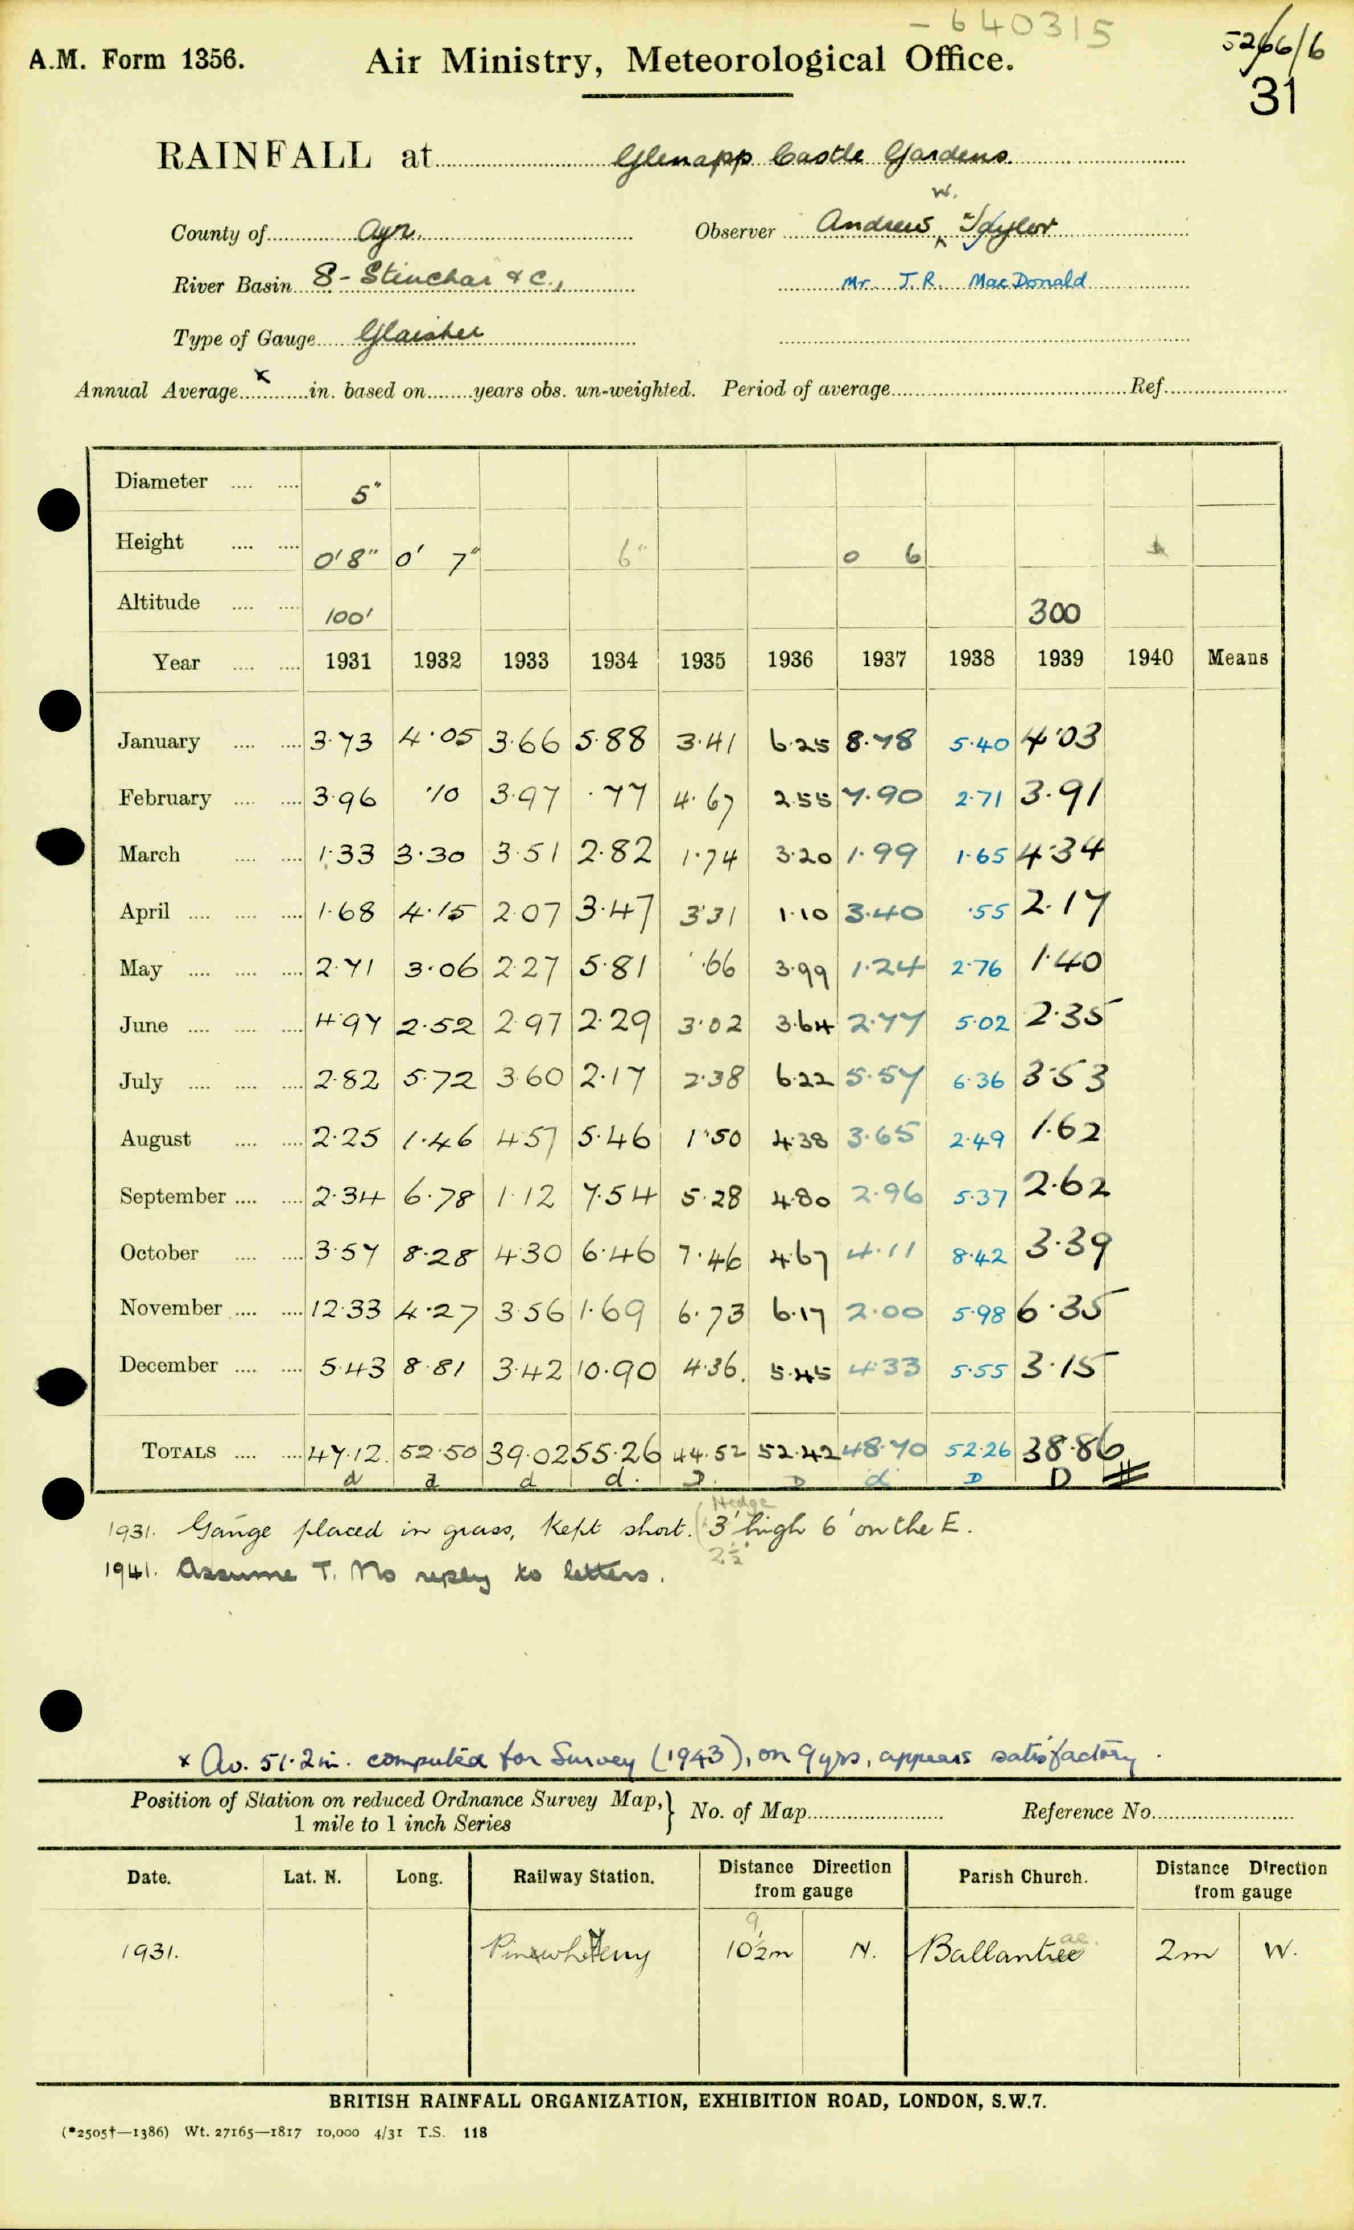 - 640315
5266/6
A.M. Form 1356. Air Ministry, Meteorological Office.
31
RAINFALL at Glenapp Castle Gardens.
County of Ayr. Observer Andrew W. Taylor
River Basin 8 - Stinchar & c., Mr. J.R. MacDonald
Type of Gauge Glaisher
Annual Average x in. based on years obs. un-weighted. Period of average Ref.
Diameter 5"
Height 0'8" 0' 7" 6" 0 6
Altitude 100' 300
Year 1931 1932 1933 1934 1935 1936 1937 1938 1939 1940 Means
January 3.73 4.05 3.66 5.88 3.41 6.25 8.78 5.40 4.03
February 3.96 .10 3.97 .77 4.67 2.55 7.90 2.71 3.91
March 1.33 3.30 3.51 2.82 1.74 3.20 1.99 1.65 4.34
April 1.68 4.15 2.07 3.47 3.31 1.10 3.40 .55 2.17
May 2.71 3.06 2.27 5.81 .66 3.99 1.24 2.76 1.40
June 4.97 2.52 2.97 2.29 3.02 3.64 2.77 5.02 2.35
July 2.82 5.72 3.60 2.17 2.38 6.22 5.57 6.36 3.53
August 2.25 1.46 4.57 5.46 1.50 4.38 3.65 2.49 1.62
September 2.34 6.78 1.12 7.54 5.28 4.80 2.96 5.37 2.62
October 3.57 8.28 4.30 6.46 7.46 4.67 4.11 8.42 3.39
November 12.33 4.27 3.56 1.69 6.73 6.17 2.00 5.98 6.35
December 5.43 8.81 3.42 10.90 4.36. 5.45 4.33 5.55 3.15
TOTALS 47.12 52.50 39.02 55.26 44.52 52.42 48.70 52.26 38.86
d d d d. D. D d D D
Hedge
1931. Gauge placed in grass, kept short. (3' high 6' on the E.
2½'
1941. Assume T. No reply to letters.
x Av. 51.2 in. computed for Survey (1943), on 9 yrs, appears satisfactory.
Position of Station on reduced Ordnance Survey Map, 1 mile to 1 inch Series } No. of Map Reference No.
Date. Lat. N. Long. Railway Station. Distance Direction from gauge Parish Church. Distance Direction from gauge
9
1931. Pinwherry 10½m N. Ballantrae 2m W.
BRITISH RAINFALL ORGANIZATION, EXHIBITION ROAD, LONDON, S.W.7.
(*2505†—1386) Wt. 27165—1817 10,000 4/31 T.S. 118